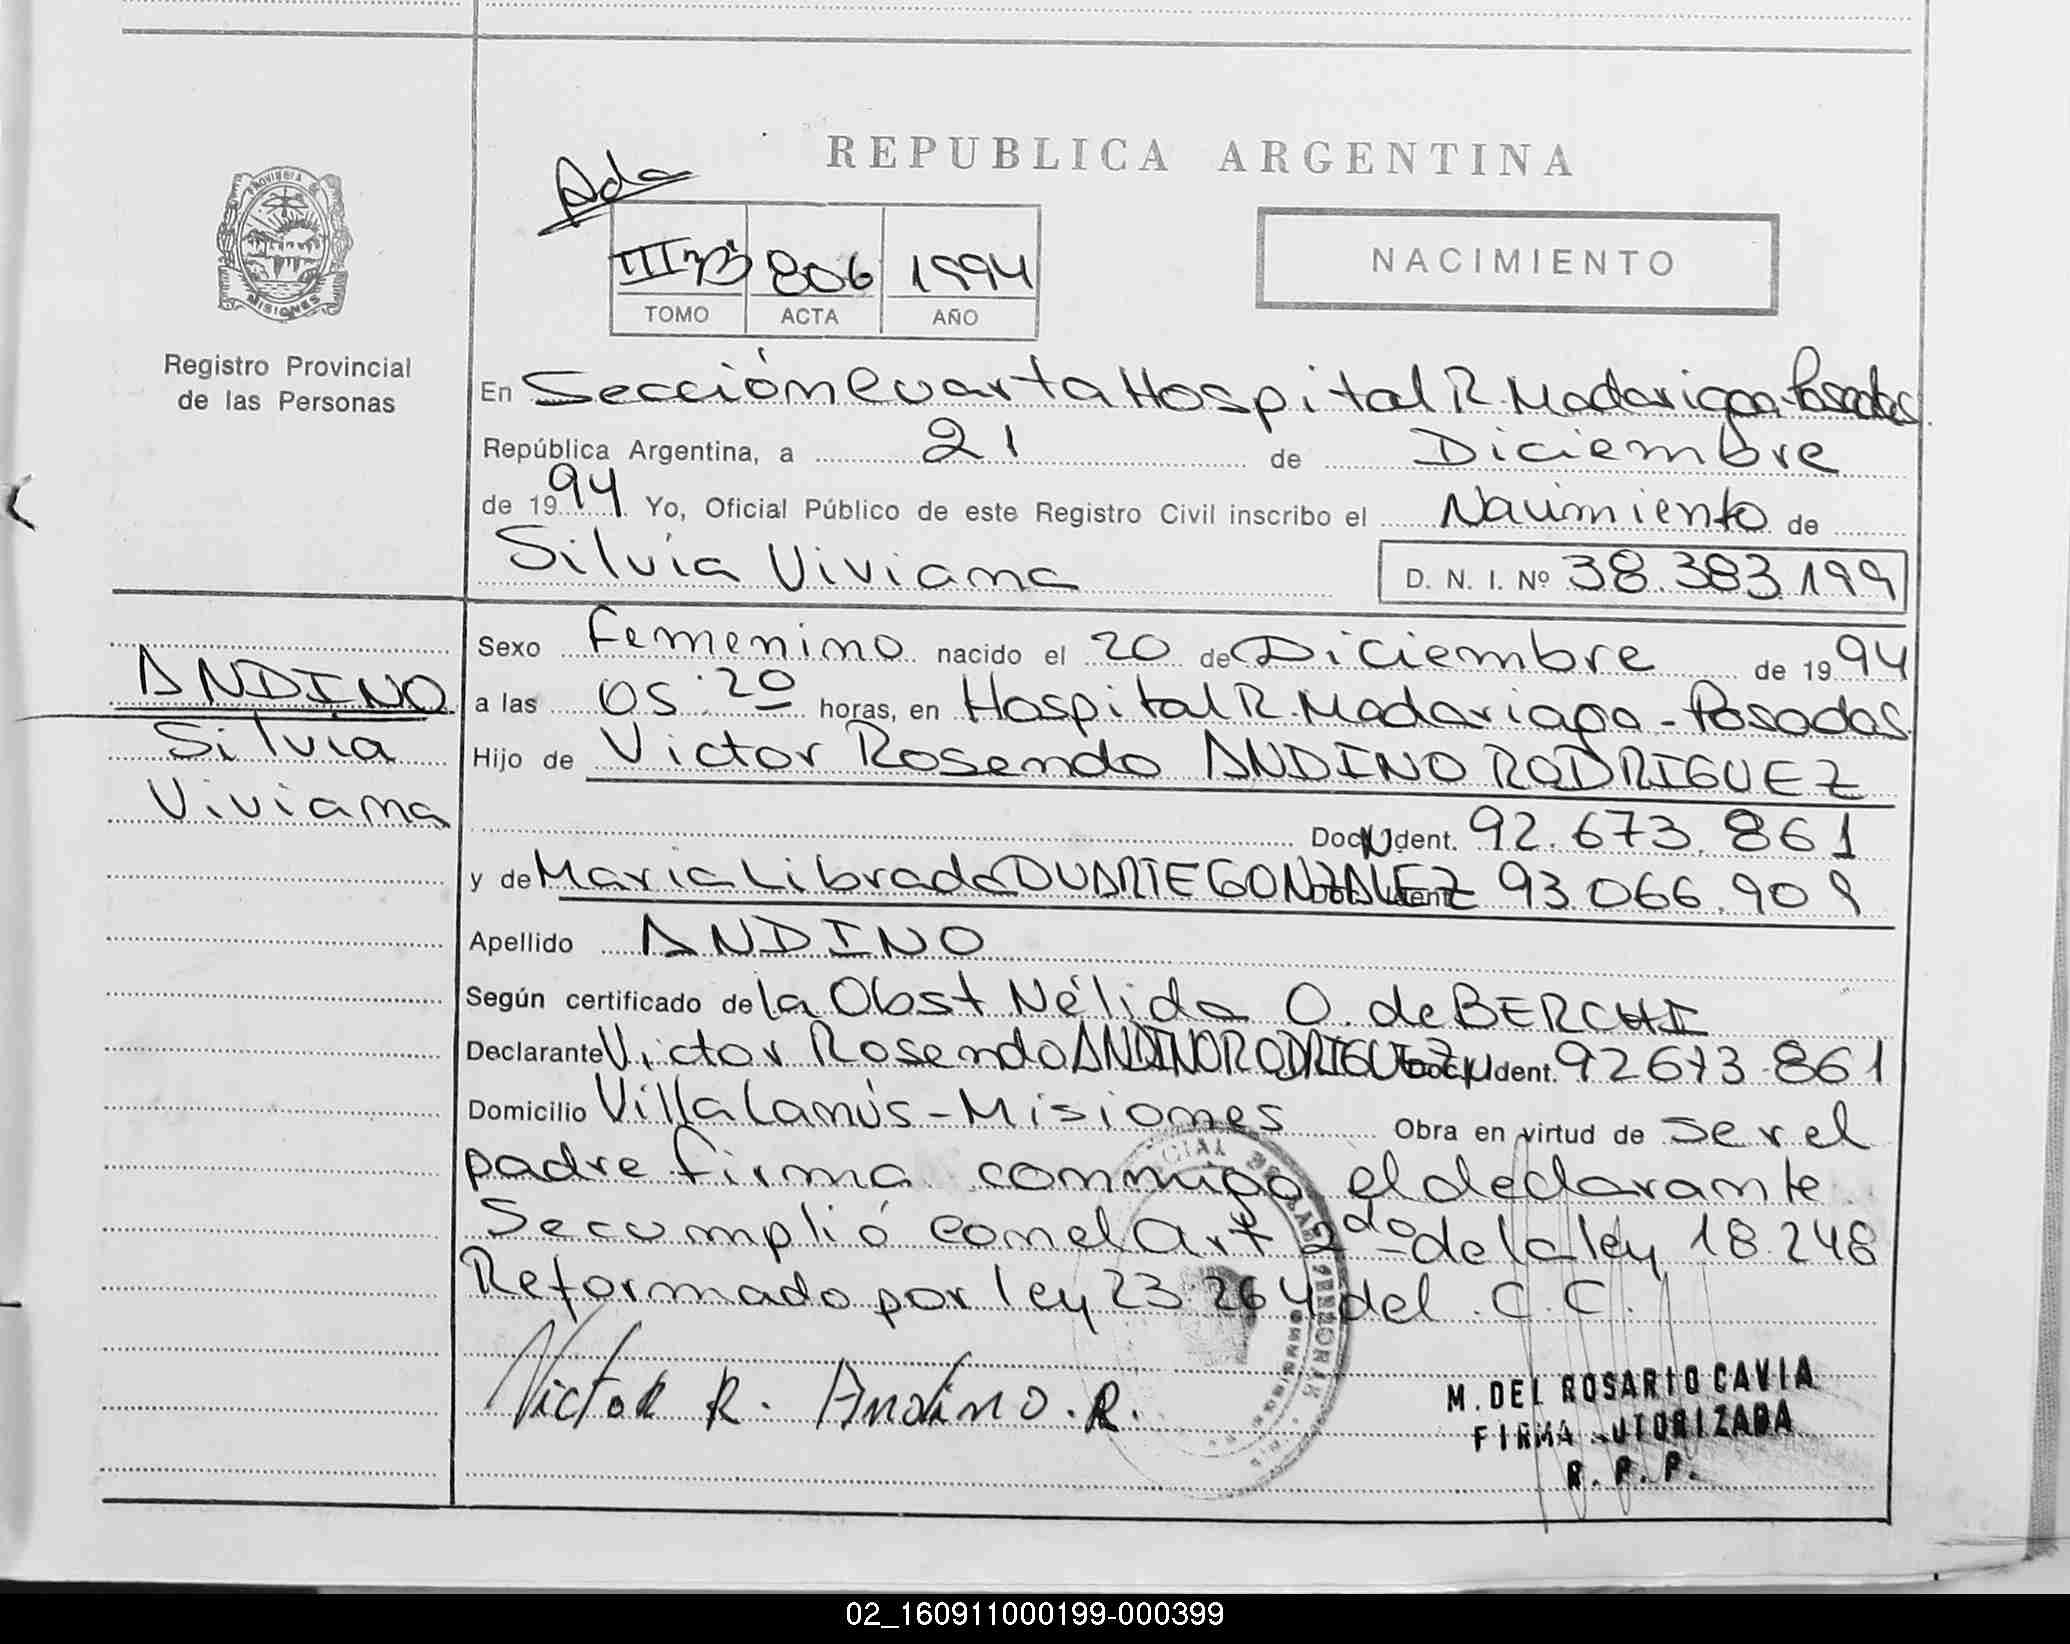 REPUBLICA ARGENTINA
Ada
PROVINCIA DE
MISIONES
III 806 1994
TOMO ACTA AÑO
NACIMIENTO
Registro Provincial
de las Personas
En Sección Cuarta Hospital R. Madariaga - Posadas
República Argentina, a 21 de Diciembre
de 1994 Yo, Oficial Público de este Registro Civil inscribo el Nacimiento de
Silvia Viviana D. N. I. Nº 38.383.199
ANDINO
Silvia
Viviana
Sexo Femenino nacido el 20 de Diciembre de 1994
a las 05:20 horas, en Hospital R. Madariaga - Posadas
Hijo de Victor Rosendo ANDINO RODRIGUEZ
Doc. N Ident. 92.673.861
y de Maria Librada DUARTE GONZALEZ 93.066.909
Apellido ANDINO
Según certificado de la Obst Nélida O. de BERCHI
Declarante Victor Rosendo ANDINO RODRIGUEZ Doc. N Ident. 92673.861
Domicilio Villa Lanús - Misiones Obra en virtud de ser el
padre firma conmigo el declarante
Se cumplió con el Art 2do de la ley 18.248
Reformado por ley 23.264 del C.C.
Victor R. Andino. R.
M. DEL ROSARIO CAVIA
FIRMA AUTORIZADA
R. P. P.
02_160911000199-000399